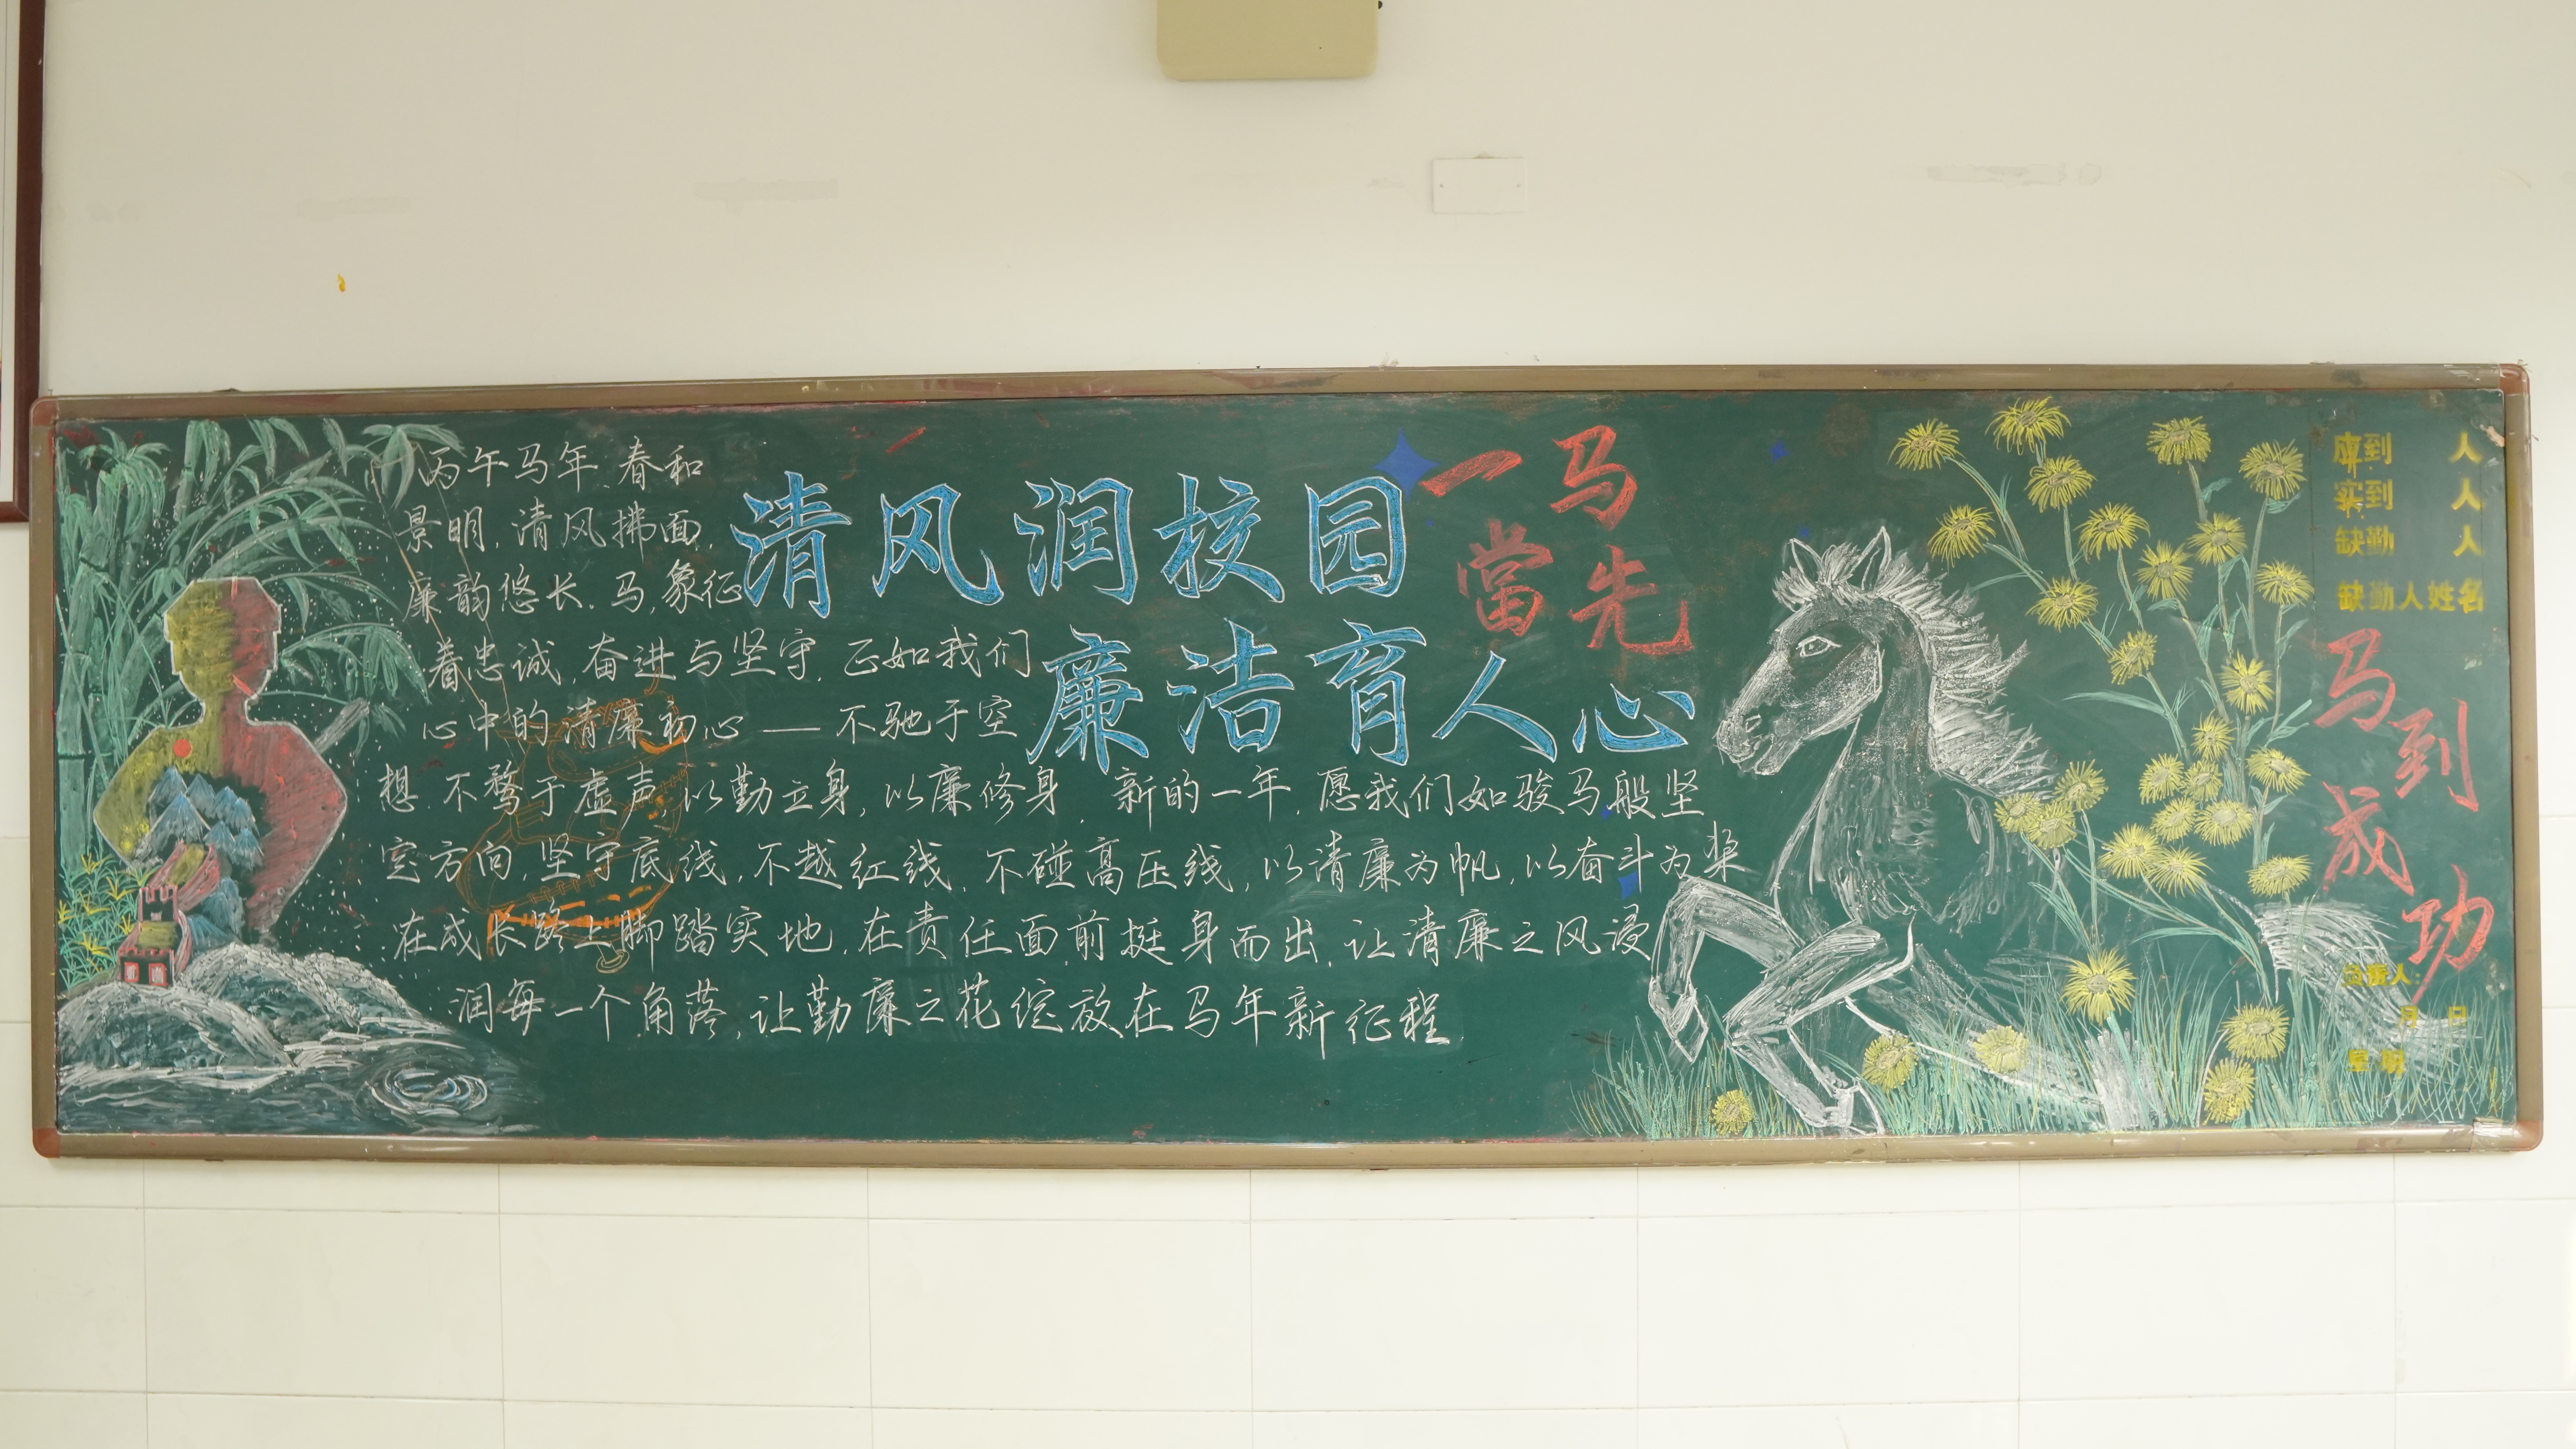 丙午马年,春和
景明,清风拂面,
廉韵悠长.马,象征
着忠诚,奋进与坚守,正如我们
心中的清廉初心——不驰于空
想.不骛于虚声,以勤立身,以廉修身.新的一年,愿我们如骏马般坚
定方向,坚守底线,不越红线,不碰高压线,以清廉为帆,以奋斗为桨
在成长路上脚踏实地,在责任面前挺身而出,让清廉之风浸
润每一个角落,让勤廉之花绽放在马年新征程
清风润校园
廉洁育人心
一马
當先
应到 人
实到 人
缺勤 人
缺勤人姓名
马到
成功
月 日
星期